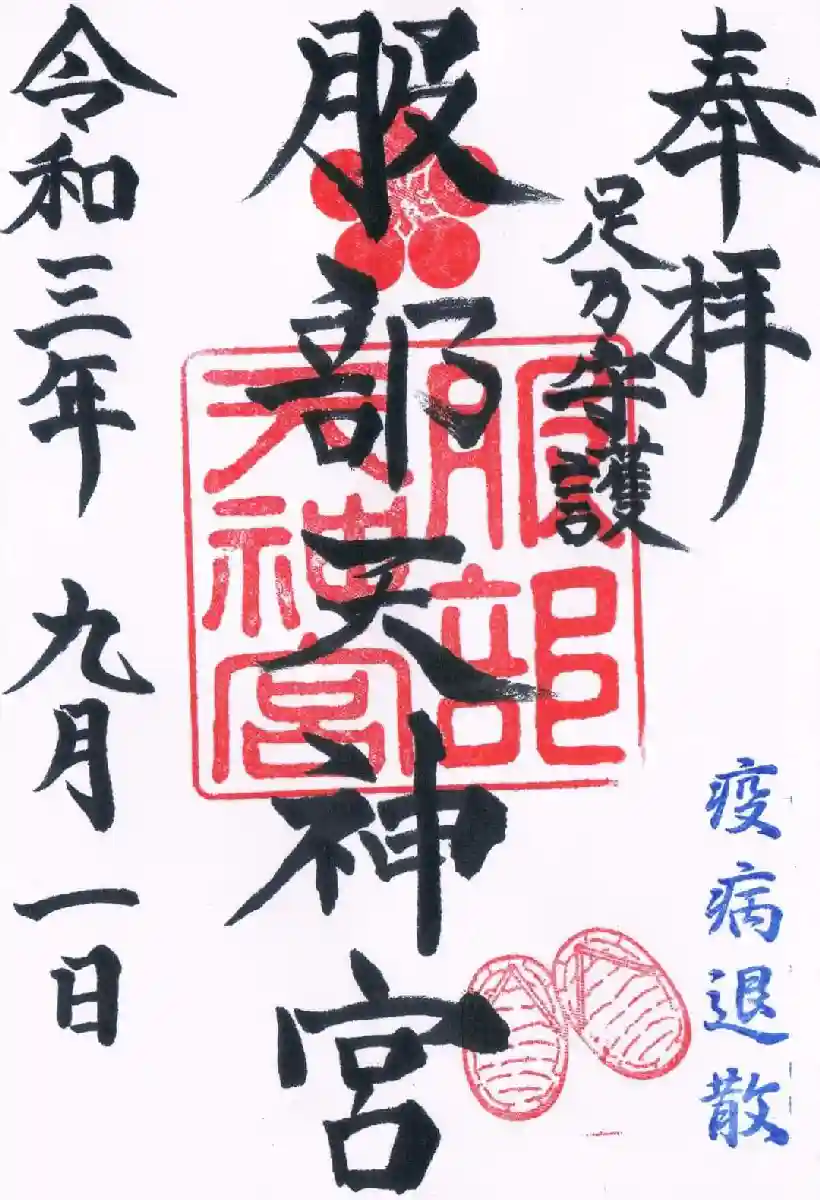 奉拝
足乃守護
疫病退散
服部天神宮
服部
天神宮
令和三年 九月 一日